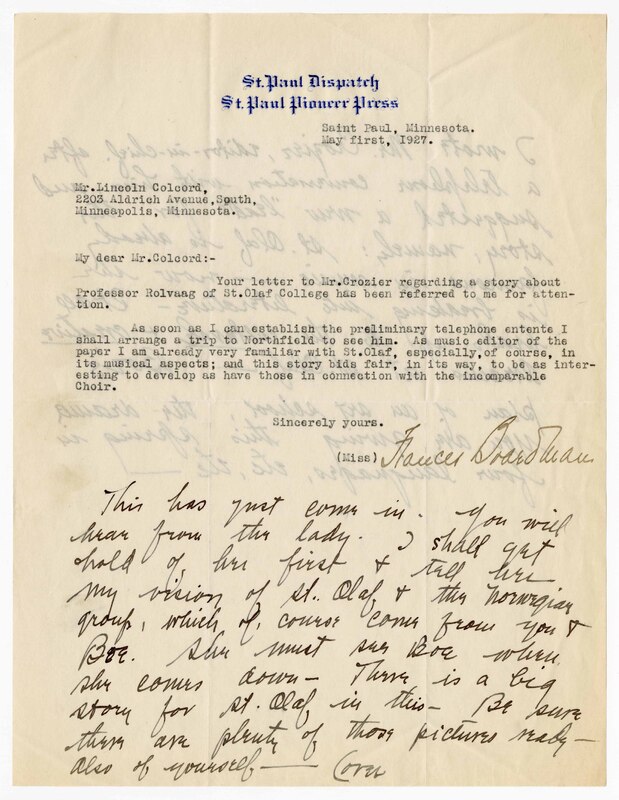 St. Paul Dispatch
St. Paul Pioneer Press
Saint Paul, Minnesota.
May first, 1927.
Mr.Lincoln Colcord,
2203 Aldrich Avenue,South,
Minneapolis, Minnesota.
My dear Mr.Colcord:-
Your letter to Mr.Crozier regarding a story about
Professor Rolvaag of St.Olaf College has been referred to me for atten-
tion.
As soon as I can establish the preliminary telephone entente I
shall arrange a trip to Northfield to see him. As music editor of the
paper I am already very familiar with St.Olaf, especially,of course, in
its musical aspects; and this story bids fair, in its way, to be as inter-
esting to develop as have those in connection with the incomparable
Choir.
Sincerely yours.
(Miss) Frances Boardman
This has just come in. You will
hear from the lady. I shall get
hold of her first & tell her
my vision of St. Olaf & the Norwegian
group, which of course come from you &
Boe. She must see Boe when
she comes down— There is a big
story for St. Olaf in this— Be sure
there are plenty of those pictures ready—
also of yourself— (over